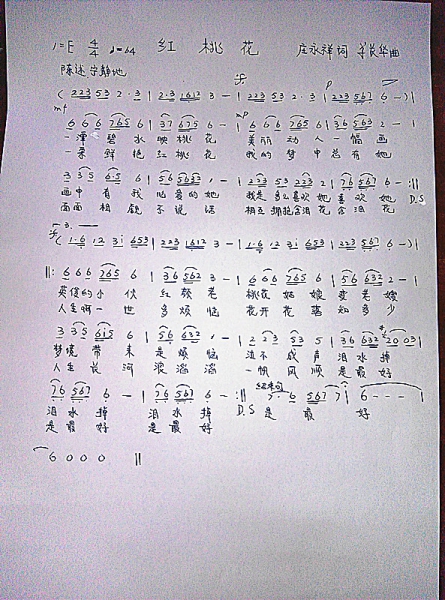 1=E 4/4 ♩=64 红 桃 花 庄永祥词 华曲
陈述 宁静地
( 223 53 2·3 | 2·3 1612 3 — | 223 53 2·3 | 223 567 6 — ) |
mf mp p
6 6 6 765 6 | 37 675 6 — | 6 6 6 765 6 | 36 563 2 — |
一潭 碧 水 映 桃 花 美丽 动 人 一幅 画
一朵 鲜 艳 红 桃 花 我的 梦 中 总有 她
3 35 65 6 | 56 5653 — | 223 53 223 2 | 76 567 6 — :|| D.S
画中 有 我 心喜的她 我是多么喜欢她 喜欢她
面面 相 觑 不说话 相互拥抱含泪花 含泪花
( 1·6 12 3i 653 | 223 1612 3 — | 1·6 12 3i 653 | 223 567 6 — ) |
||: 6 6 6 765 6 | 36 562 3 — | 6 6 6 765 6 | 56 632 2 — |
英俊的小 伙 红颜老 桃花 姑 娘 变老嫂
人生啊一 世 多烦恼 花开 花 落 知多少
3 35 615 6 | 56 632 — | 2 23 53 5 | 36 632 2003 |
梦境 带 来 是烦恼 泣不 成 声 泪水掉
人生 长 河 浪滔滔 一帆 风 顺 是最好
76 567 6 — | 76 567 6 — :|| D.S 7·6 567 7 | 6 — — — |
泪 水 掉 泪 水 掉 是 最 好
是 最 好 是 最 好
6 0 0 0 ||